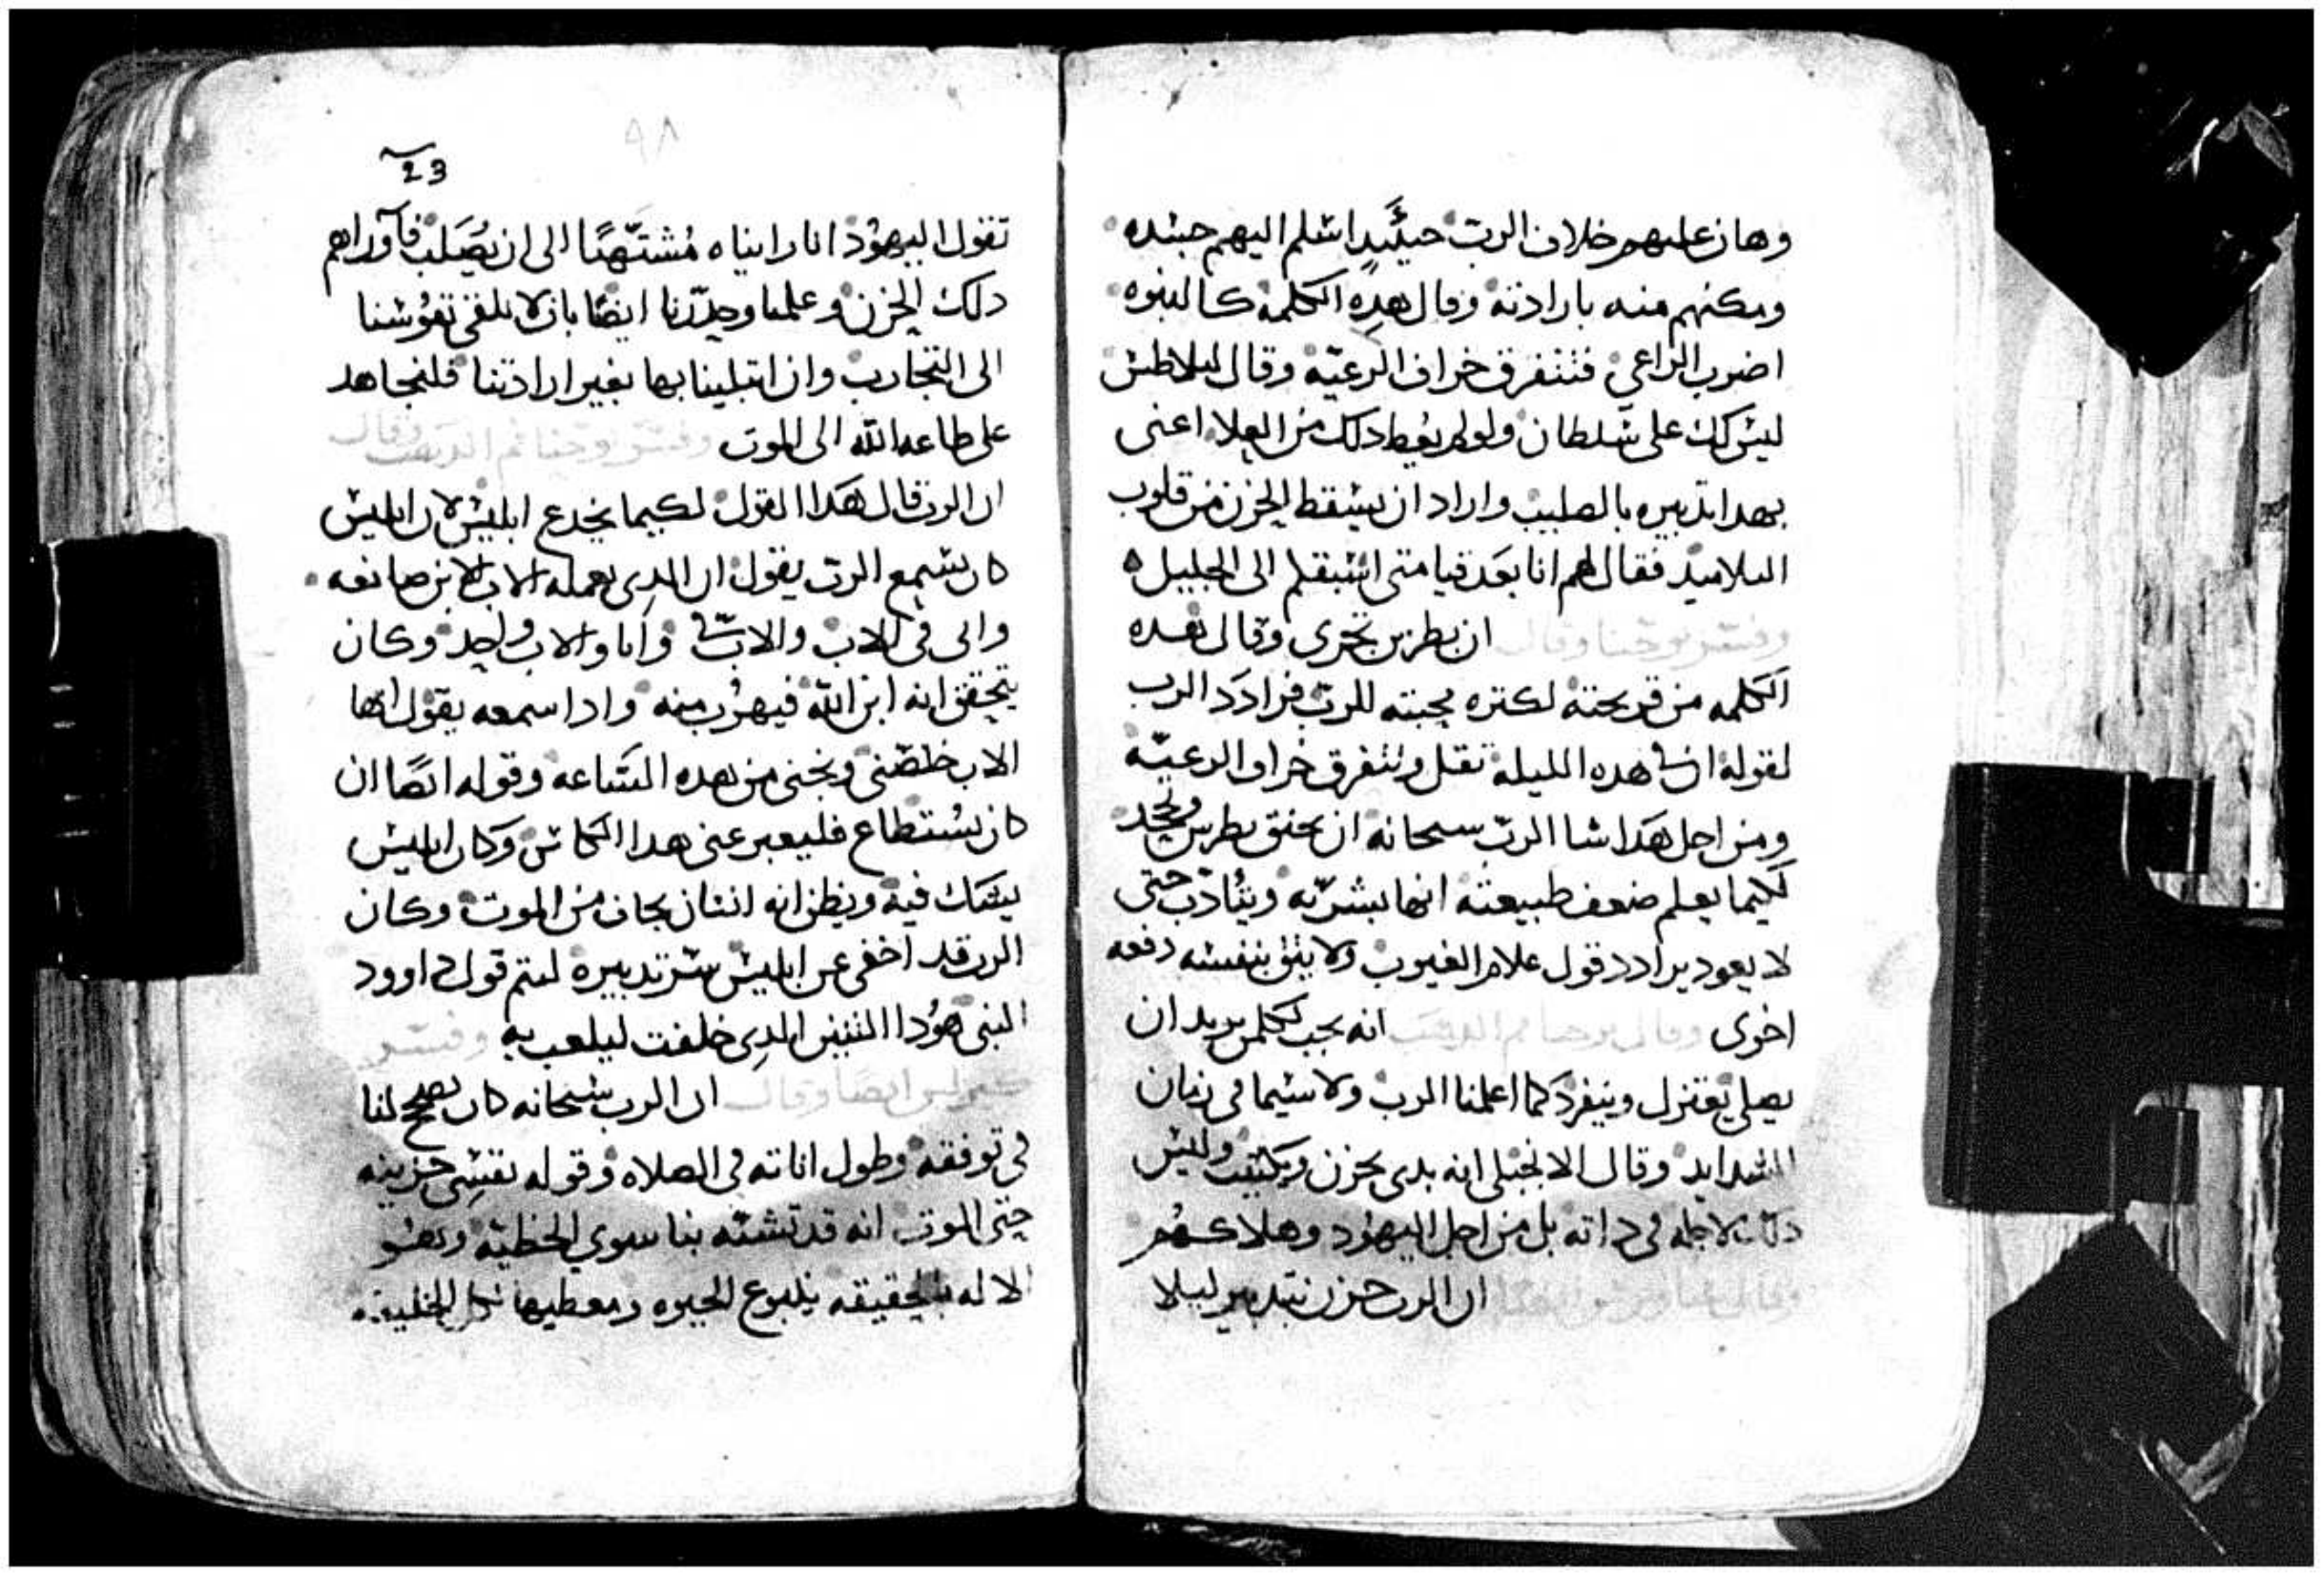 وهان عليهم خلاف الرب حينيدٍ اسلم اليهم جسده
ومكنهم منه بارادته وقال هده الكلمة كالنبوه
اضرب الراعي فتتفرق خراف الرعيّة وقال لبيلاطس
ليس لك على سلطان ولو لم يعط دلك من العلا اعنى
بهدا تدبيره بالصليب واراد ان يسقط الحزن من قلوب
التلاميد فقال لهم انا بعد قيامتى اسبقكم الى الجليل
وفسر يوحنا وقال ان بطرس تجرى وقال هده
الكلمه من قريحته لكتره محبته للرب فرادد الرب
لقوله ان في هده الليلة تقل وتتفرق خراف الرعيّه
ومن اجل هدا شا الرب سبحانه ان بطرس ويجحد
لكيما يعلم ضعف طبيعته انها بشريّه ويتادّب حتى
لا يعود يرادد قول علام الغيوب ولا يثق بنفسه دفعه
اخرى وقال يوحنا فم الدهب انه يجب لكلمن يريد ان
يصلي يعتزل وينفرد كما اعلمنا الرب ولا سيما فى زمان
الشدايد وقال الانجيلى انه بدى يحزن ويكتيب وليس
دلك لاجله فى داته بل من اجل اليهود وهلاكهم
ان الرب حزن بتدبير ليلا
23
٩٨
تقول اليهود انا رايناه مُشتّهيًا الى ان يُصَلب فآوراهم
دلك الحزن وعلمنا وحدّرنا ايضًا بان لا نلقي نفوسنا
الى التجارب وان ابتلينا بها بغير ارادتنا فلنجاهد
على طاعه الله الى الموت وفسر يوحنا فم الدهب وقال
ان الرب قال هدا القول لكيما يخدع ابليس لان ابليس
كان يسمع الرب يقول ان الدى يعمله الاب الابن صانعه
وانى فى الاب والاب فيّ وانا والاب واحد وكان
يتحقق انه ابن الله فيهرُب منه وادا سمعه يقول ايها
الاب خلصنى ونجنى من هده الساعه وقوله ايضًا ان
كان يستطاع فليعبر عنى هدا الكاس وكان ابليس
يشك فيه ويظن انه انسان يخاف من الموت وكان
الرب قد اخفى عن ابليس سر تدبيره ليتم قول داوود
النبى هوُدا التنين الدى خلقت ليلعب به وفسر
كيرلس ايضًا وقال ان الرب سبحانه كان لنا
في توفقه وطول اناته في الصلاه وقوله نفسي حزينه
حتى الموت انه قد تشبّه بنا سوي الخطيّه وهو
الاله بالحقيقه ينبوع الحيوه ومعطيها الخليقه